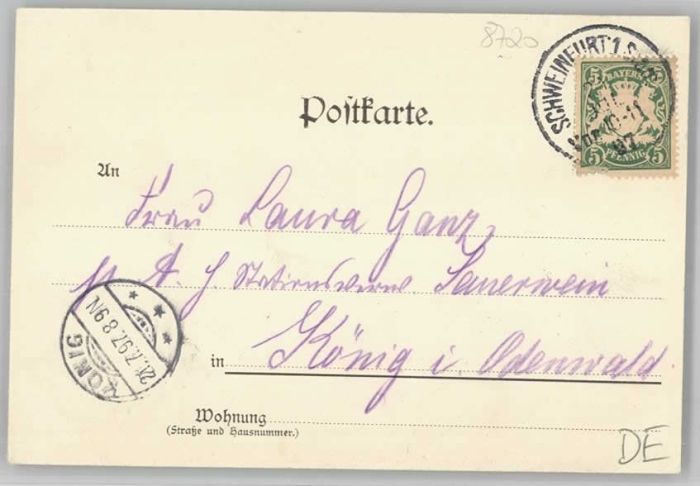 8720
SCHWEINFURT 1
BAYERN
5 5
Vor 10-11
97
5 5
PFENNIG
Postkarte.
An
Frau Laura Ganz
A. H. Sauerwein
in König i. Odenwald
KÖNIG
21.7.97 8-9N
Wohnung
(Straße und Hausnummer.)
DE